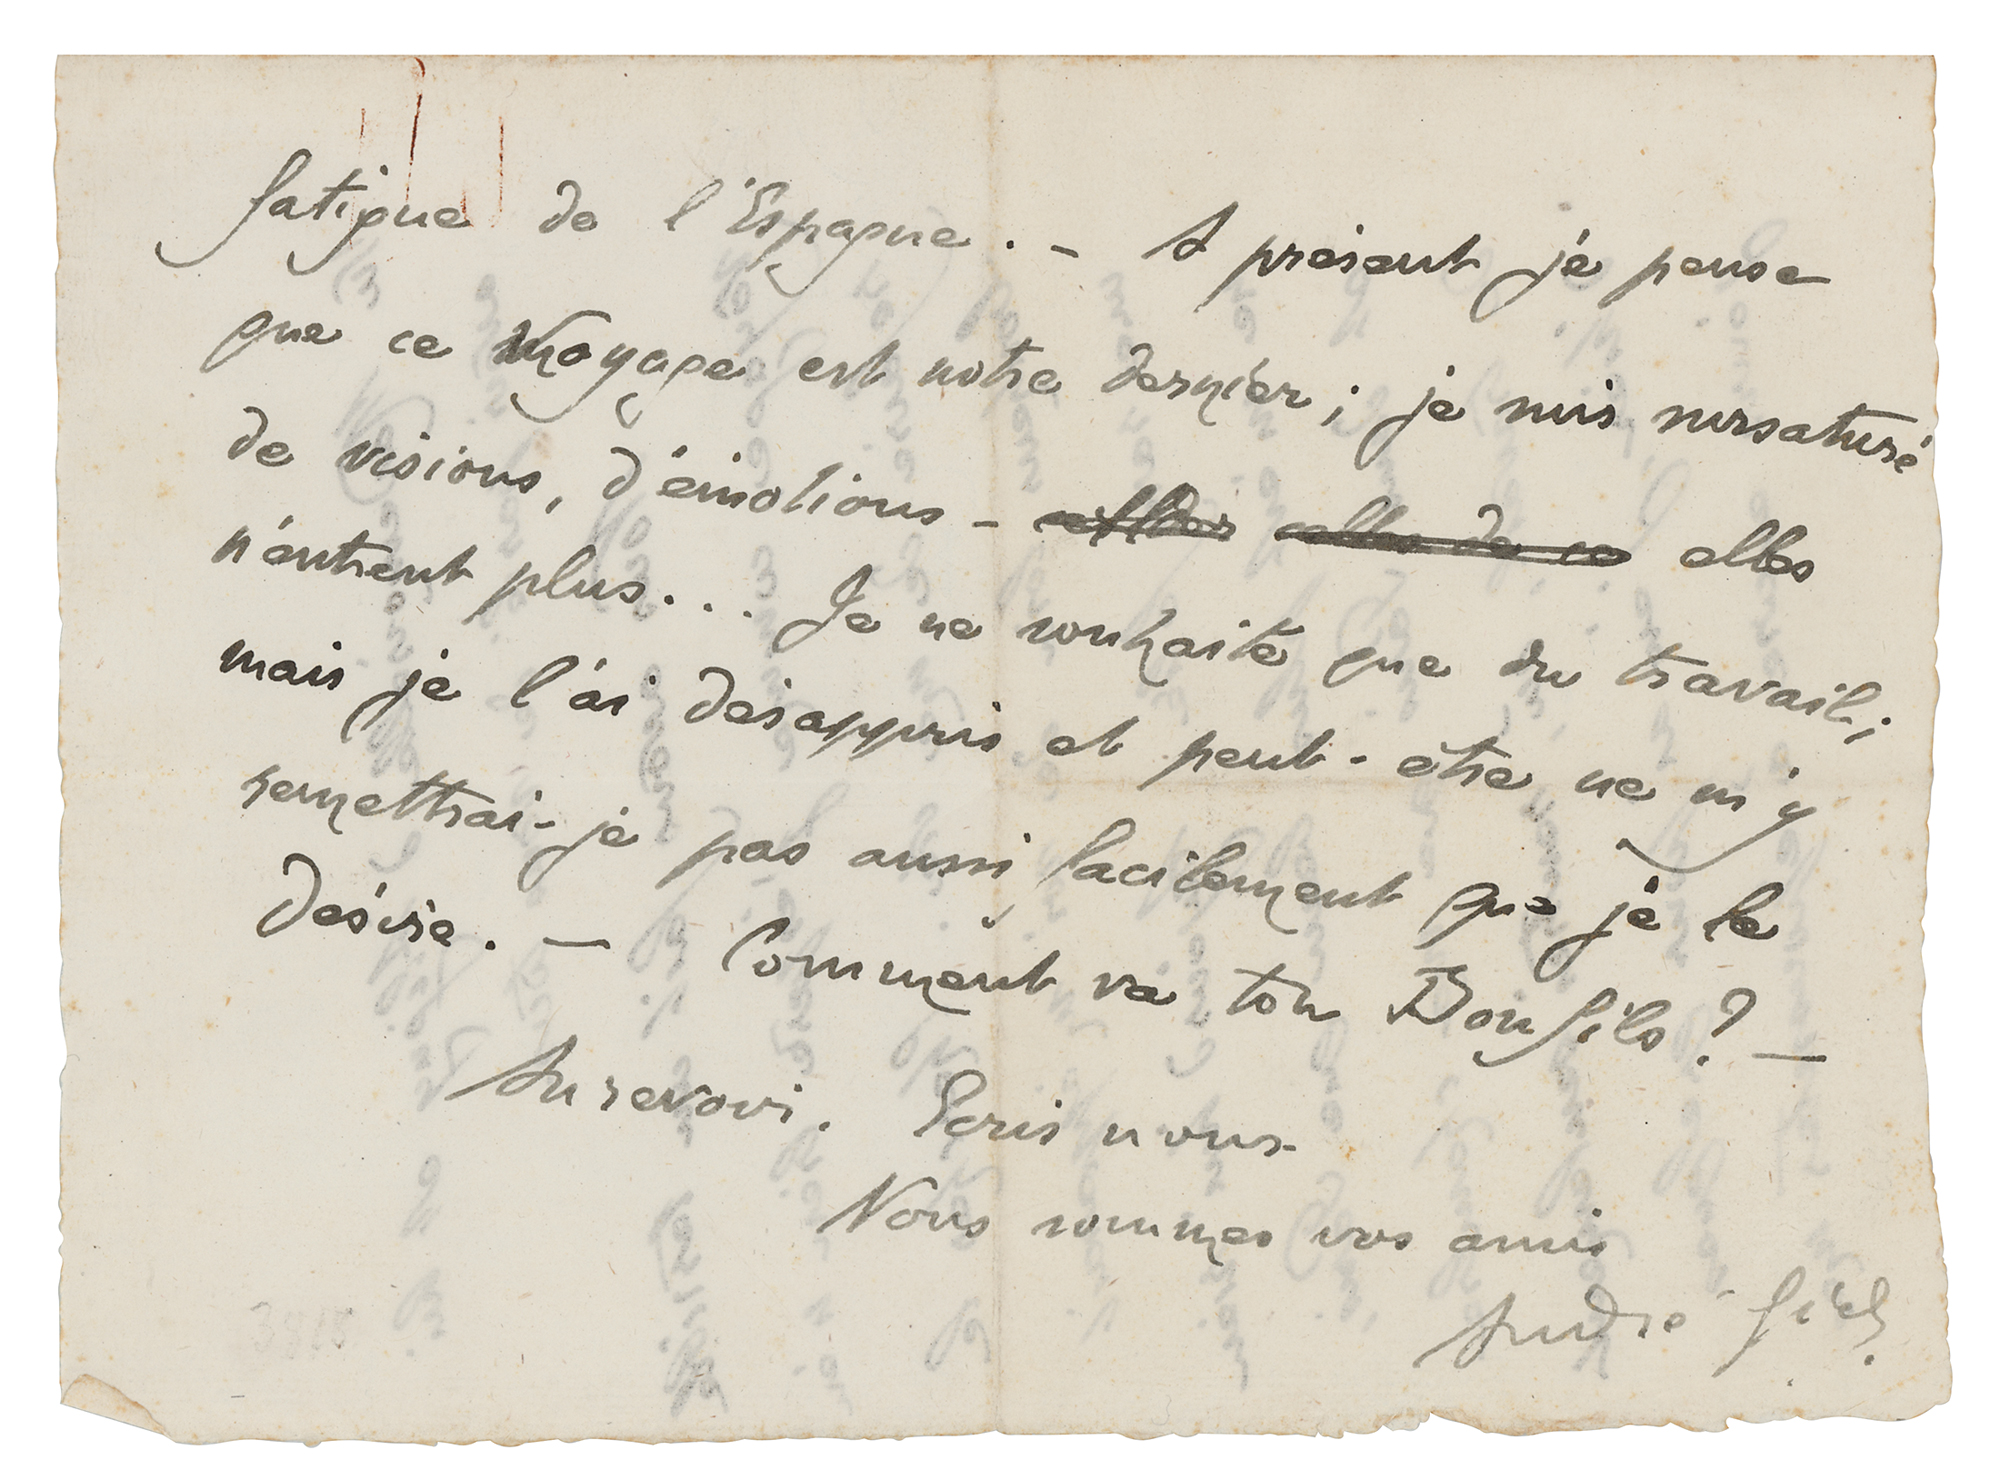 fatigue de l'Espagne. — A présent je pense
que ce voyage est notre dernier ; je suis sursaturé
de visions, d'émotions – elles
n'entrent plus... Je ne souhaite que du travail ;
mais je l'ai désappris et peut-être ne m'y
remettrai-je pas aussi facilement que je le
désire. — Comment va ton Bonfils ? —
Au revoir. Ecris nous.
Nous sommes vos amis
André Gide.